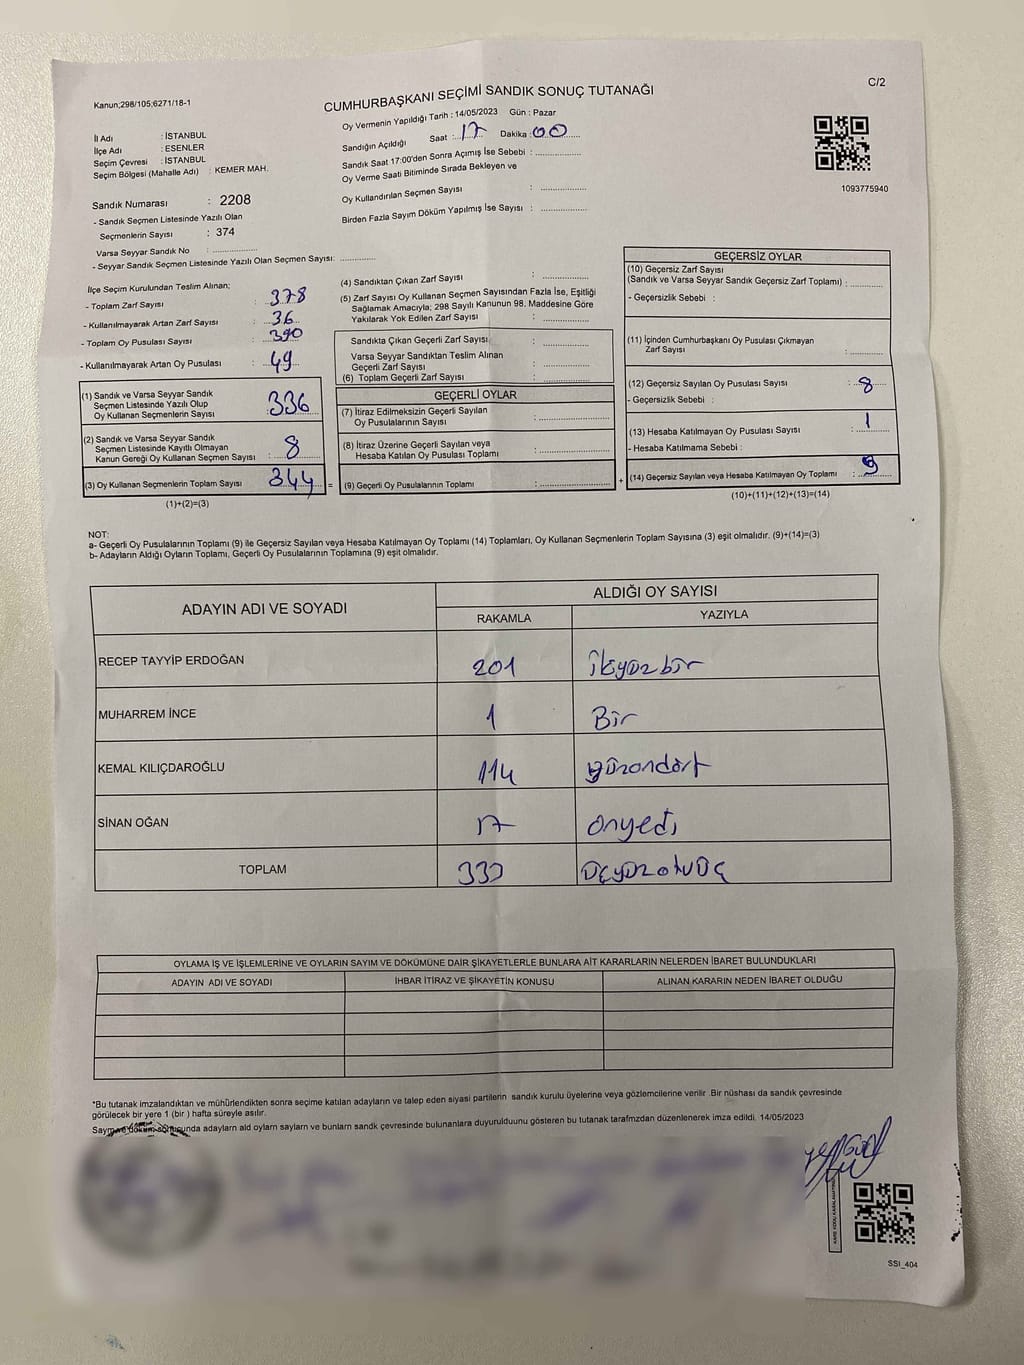 C/2
Kanun;298/105;6271/18-1
CUMHURBAŞKANI SEÇİMİ SANDIK SONUÇ TUTANAĞI
Oy Vermenin Yapıldığı Tarih : 14/05/2023 Gün : Pazar
İl Adı : İSTANBUL
İlçe Adı : ESENLER
Seçim Çevresi : İSTANBUL
Seçim Bölgesi (Mahalle Adı) : KEMER MAH.
Sandığın Açıldığı Saat : 17 Dakika : 00
Sandık Saat 17:00'den Sonra Açımış İse Sebebi : ....................
Oy Verme Saati Bitiminde Sırada Bekleyen ve
Oy Kullandırılan Seçmen Sayısı : ....................
Birden Fazla Sayım Döküm Yapılmış İse Sayısı : ....................
1093775940
Sandık Numarası : 2208
- Sandık Seçmen Listesinde Yazılı Olan
Seçmenlerin Sayısı : 374
Varsa Seyyar Sandık No : ....................
- Seyyar Sandık Seçmen Listesinde Yazılı Olan Seçmen Sayısı: ...............
İlçe Seçim Kurulundan Teslim Alınan;
- Toplam Zarf Sayısı : 378
- Kullanılmayarak Artan Zarf Sayısı : 36
- Toplam Oy Pusulası Sayısı : 390
- Kullanılmayarak Artan Oy Pusulası : 49
(1) Sandık ve Varsa Seyyar Sandık
Seçmen Listesinde Yazılı Olup
Oy Kullanan Seçmenlerin Sayısı : 336
(2) Sandık ve Varsa Seyyar Sandık
Seçmen Listesinde Kayıtlı Olmayan
Kanun Gereği Oy Kullanan Seçmen Sayısı : 8
(3) Oy Kullanan Seçmenlerin Toplam Sayısı 344 =
(1)+(2)=(3)
(4) Sandıktan Çıkan Zarf Sayısı : ....................
(5) Zarf Sayısı Oy Kullanan Seçmen Sayısından Fazla İse, Eşitliği
Sağlamak Amacıyla; 298 Sayılı Kanunun 98. Maddesine Göre
Yakılarak Yok Edilen Zarf Sayısı : ....................
Sandıkta Çıkan Geçerli Zarf Sayısı : ....................
Varsa Seyyar Sandıktan Teslim Alınan
Geçerli Zarf Sayısı : ....................
(6) Toplam Geçerli Zarf Sayısı : ....................
GEÇERLİ OYLAR
(7) İtiraz Edilmeksizin Geçerli Sayılan
Oy Pusulalarının Sayısı : ....................
(8) İtiraz Üzerine Geçerli Sayılan veya
Hesaba Katılan Oy Pusulası Toplamı : ....................
(9) Geçerli Oy Pusulalarının Toplamı : .................... +
GEÇERSİZ OYLAR
(10) Geçersiz Zarf Sayısı
(Sandık ve Varsa Seyyar Sandık Geçersiz Zarf Toplamı) : ...............
- Geçersizlik Sebebi :
(11) İçinden Cumhurbaşkanı Oy Pusulası Çıkmayan
Zarf Sayısı : ...............
(12) Geçersiz Sayılan Oy Pusulası Sayısı : 8
- Geçersizlik Sebebi :
(13) Hesaba Katılmayan Oy Pusulası Sayısı : 1
- Hesaba Katılmama Sebebi :
(14) Geçersiz Sayılan veya Hesaba Katılmayan Oy Toplamı : 9
(10)+(11)+(12)+(13)=(14)
NOT:
a- Geçerli Oy Pusulalarının Toplamı (9) ile Geçersiz Sayılan veya Hesaba Katılmayan Oy Toplamı (14) Toplamları, Oy Kullanan Seçmenlerin Toplam Sayısına (3) eşit olmalıdır. (9)+(14)=(3)
b- Adayların Aldığı Oyların Toplamı, Geçerli Oy Pusulalarının Toplamına (9) eşit olmalıdır.
ADAYIN ADI VE SOYADI ALDIĞI OY SAYISI
RAKAMLA YAZIYLA
RECEP TAYYİP ERDOĞAN 201 ikiyüzbir
MUHARREM İNCE 1 Bir
KEMAL KILIÇDAROĞLU 114 yüzondört
SİNAN OĞAN 17 onyedi
TOPLAM 333 üçyüzotuüç
OYLAMA İŞ VE İŞLEMLERİNE VE OYLARIN SAYIM VE DÖKÜMÜNE DAİR ŞİKAYETLERLE BUNLARA AİT KARARLARIN NELERDEN İBARET BULUNDUKLARI
ADAYIN ADI VE SOYADI İHBAR İTİRAZ VE ŞİKAYETİN KONUSU ALINAN KARARIN NEDEN İBARET OLDUĞU
*Bu tutanak imzalandıktan ve mühürlendikten sonra seçime katılan adayların ve talep eden siyasi partilerin sandık kurulu üyelerine veya gözlemcilerine verilir. Bir nüshası da sandık çevresinde
görülecek bir yere 1 (bir ) hafta süreyle asılır.
Sayım ve döküm sonucunda adayların ald oyların sayları ve bunların sandk çevresinde bulunanlara duyurulduunu gösteren bu tutanak tarafmzdan düzenlenerek imza edildi. 14/05/2023
SSI_404